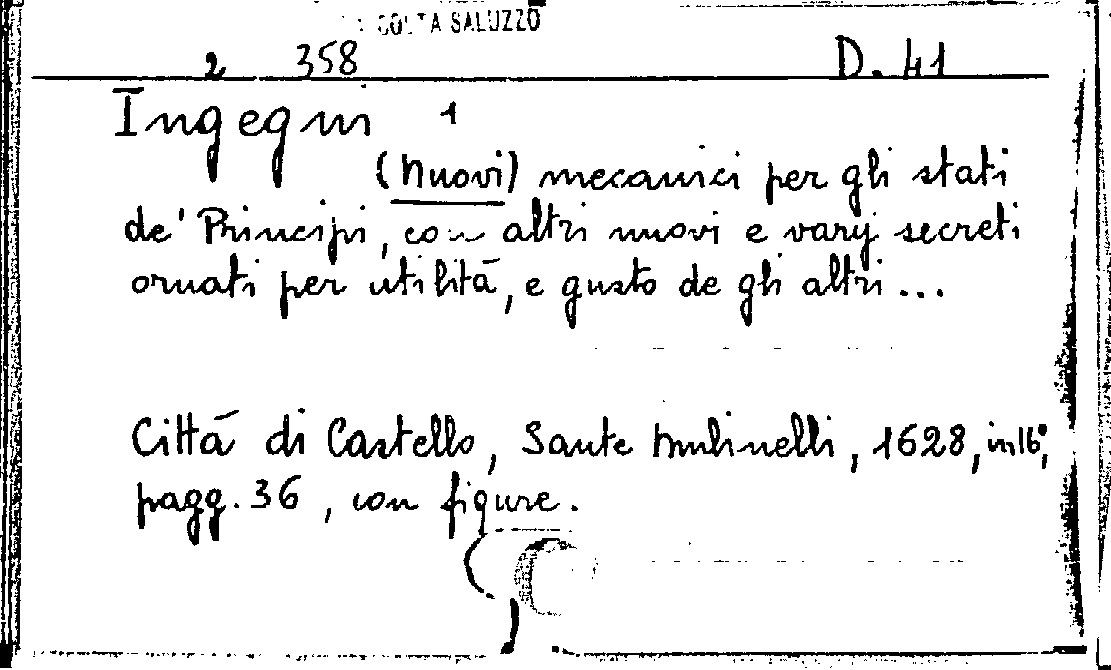 SALUZZO
2 358 D. 41
Ingegni 1
(Nuovi) mecanici per gli stati
de' Principi, con altri nuovi e varij secreti
ornati per utilità, e gusto de gli altri...
Città di Castello, Sante Mulinelli, 1628, in 16°,
pagg. 36, con figure.